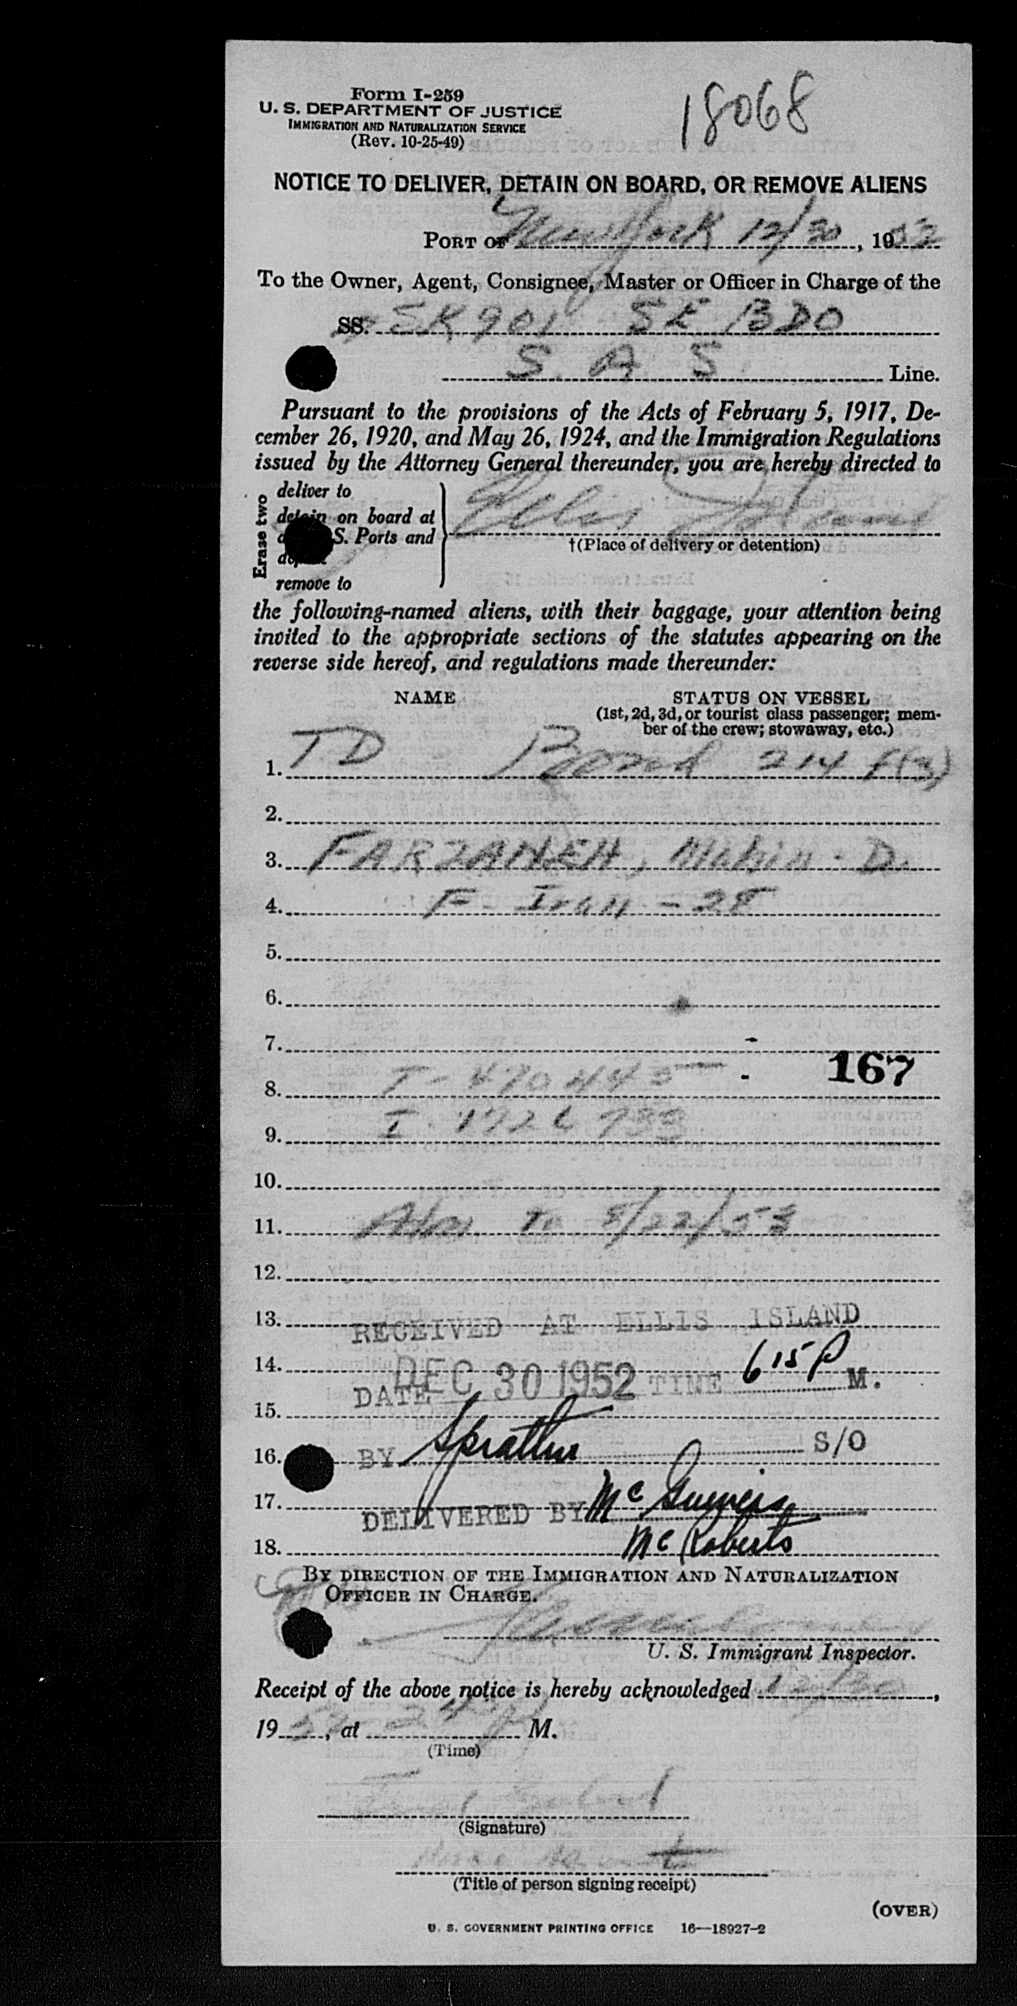 Form I-259
U. S. DEPARTMENT OF JUSTICE
IMMIGRATION AND NATURALIZATION SERVICE
(Rev. 10-25-49)
18068
NOTICE TO DELIVER, DETAIN ON BOARD, OR REMOVE ALIENS
PORT OF New York 12/30, 1952
To the Owner, Agent, Consignee, Master or Officer in Charge of the
SS. SK 901 SE BDO
S. A. S. Line.
Pursuant to the provisions of the Acts of February 5, 1917, De-
cember 26, 1920, and May 26, 1924, and the Immigration Regulations
issued by the Attorney General thereunder, you are hereby directed to
Erase two
deliver to
detain on board at
S. Ports and
remove to
Ellis Island
†(Place of delivery or detention)
the following-named aliens, with their baggage, your attention being
invited to the appropriate sections of the statutes appearing on the
reverse side hereof, and regulations made thereunder:
NAME STATUS ON VESSEL
(1st, 2d, 3d, or tourist class passenger; mem-
ber of the crew; stowaway, etc.)
1. TD Bond 214 f(3)
2.
3. FARZANEH, Mahin - D.
4. F - Iran - 28
5.
6.
7.
167
8. T - 470445
9. I - 1726 733
10.
11. Adm To 5/22/53
12.
13. RECEIVED AT ELLIS ISLAND
14. DATE DEC 30 1952 TIME 6 15 P M.
15.
16. BY S/O
17. DELIVERED BY
Mc Roberts
18.
BY DIRECTION OF THE IMMIGRATION AND NATURALIZATION
OFFICER IN CHARGE.
U. S. Immigrant Inspector.
Receipt of the above notice is hereby acknowledged 12/30,
19 52, at M.
(Time)
(Signature)
(Title of person signing receipt)
(OVER)
U. S. GOVERNMENT PRINTING OFFICE 16—18927-2